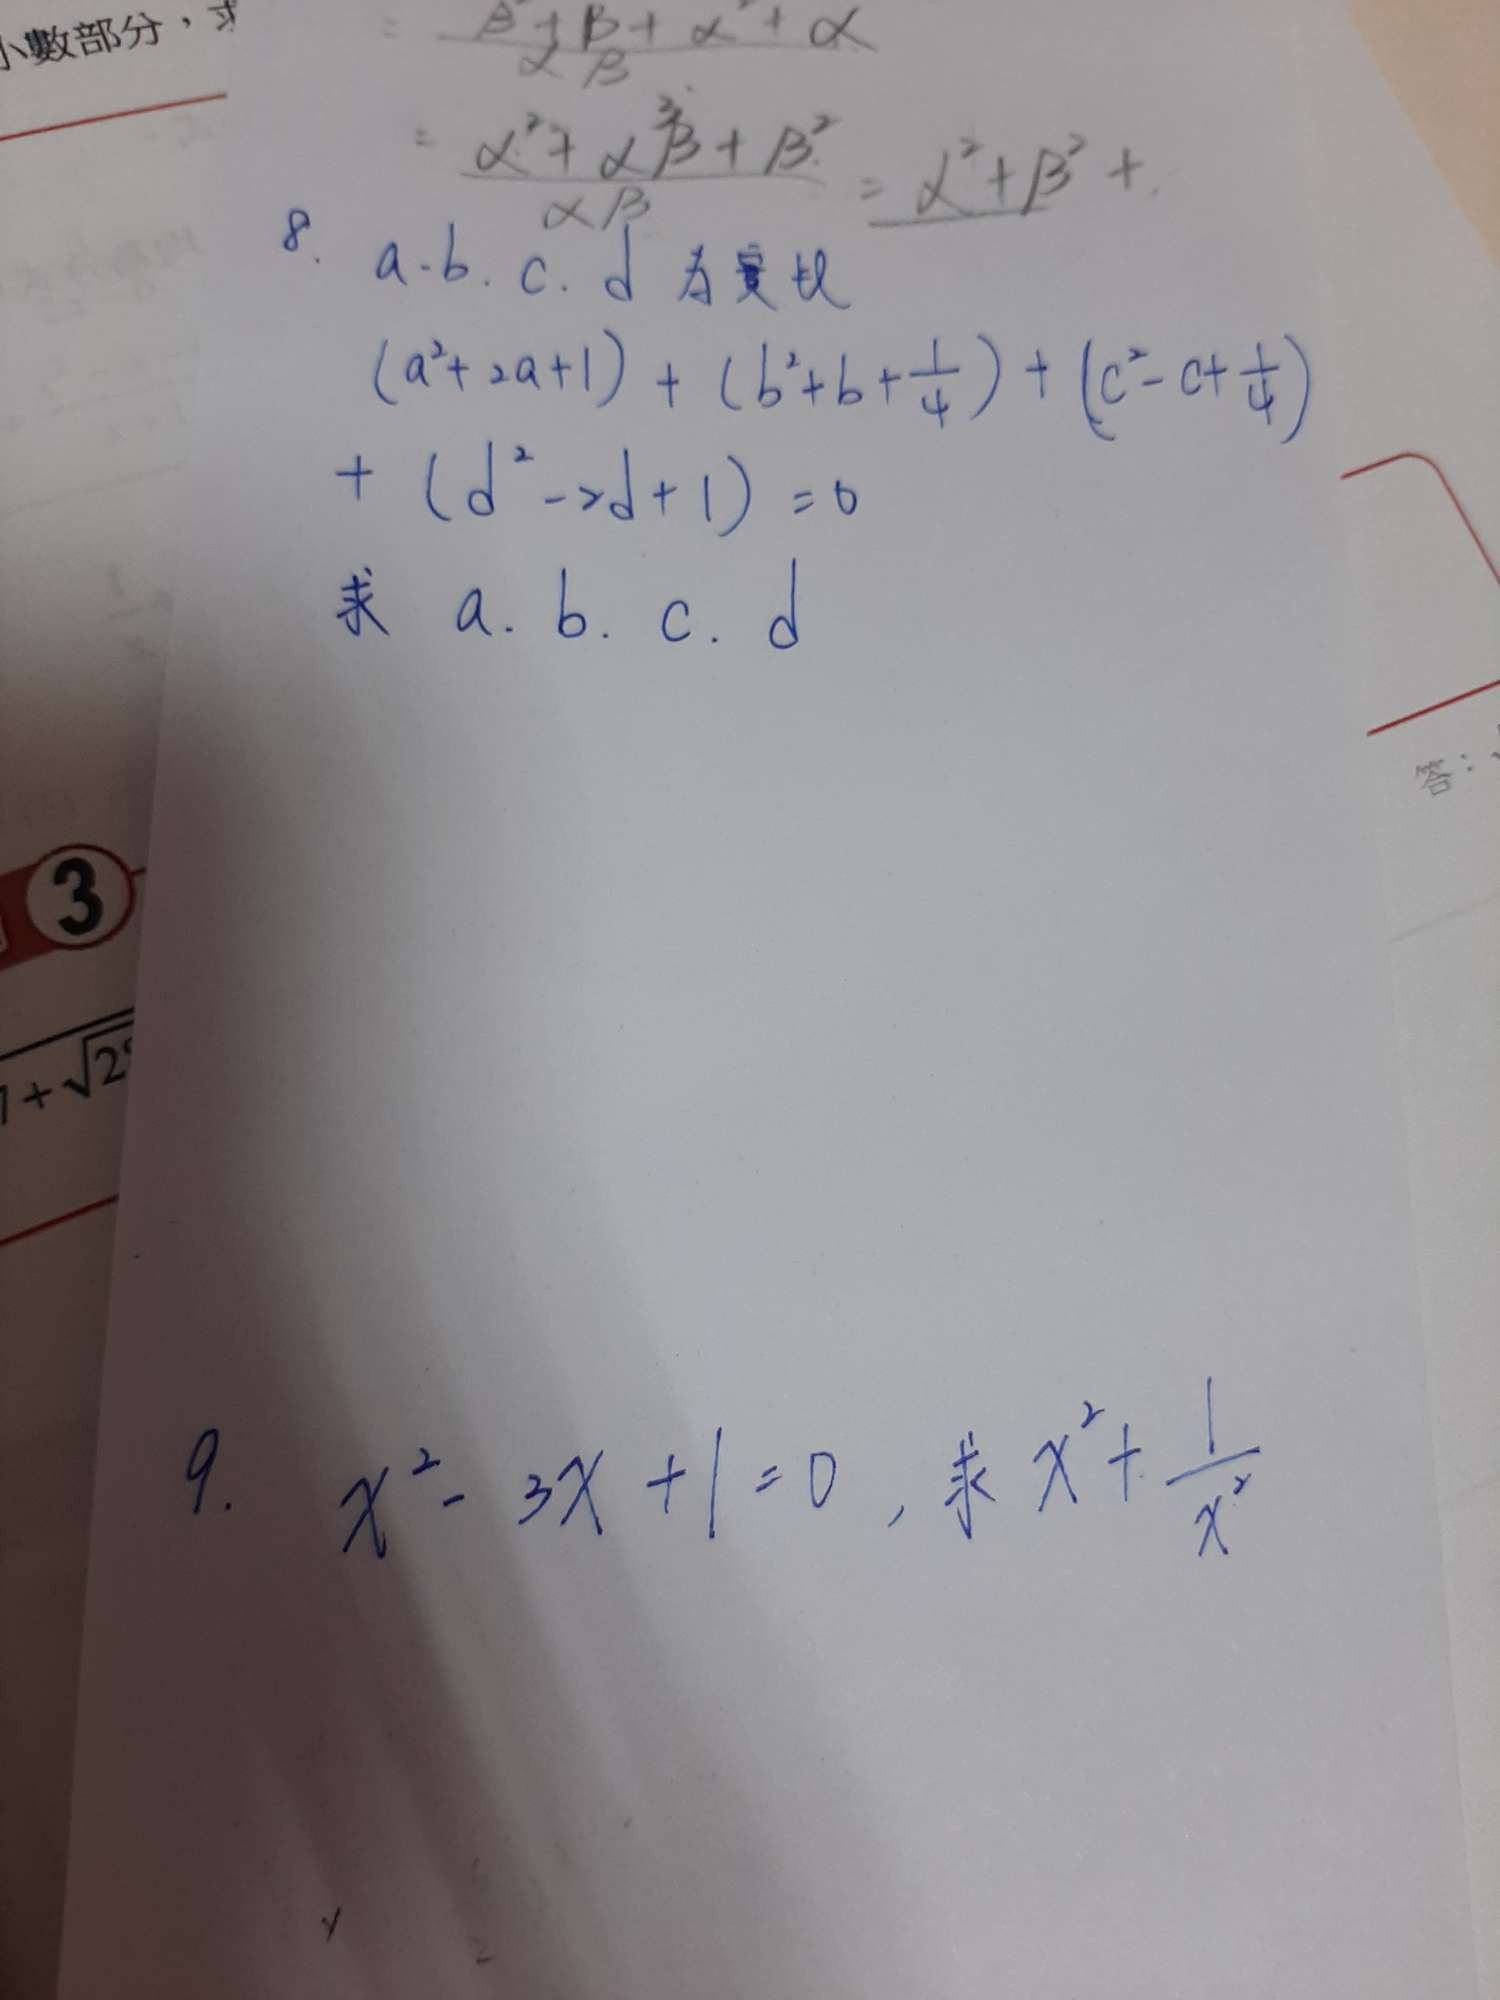 小數部分，求
= β²+β+α²+α / αβ
= α²+α²β+β² / αβ = α²+β²+
8. a.b.c.d 為實
(a²+2a+1) + (b²+b+1/4) + (c²-c+1/4)
+ (d²-2d+1) = 0
求 a. b. c. d
答：
3
1+√2
9. x²-3x+1=0, 求 x²+1/x²